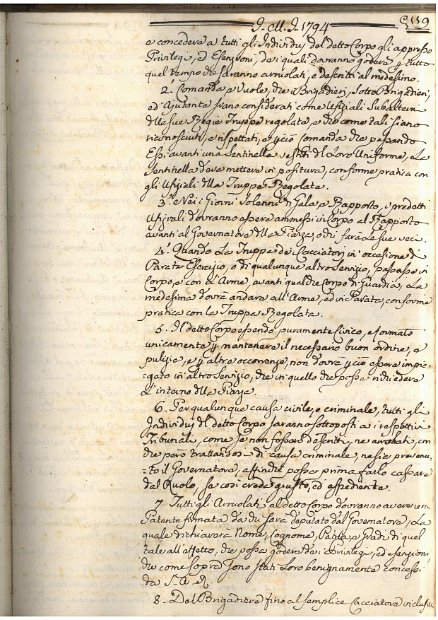 J. M. J. 1794
e concedeva a tutti gl'Individuj del detto Corpo gli appresso
Privilegj, ed Esenzioni, dei quali dovranno godere per tutto
quel tempo che saranno arruolati, e descritti al medesimo.
2. Comanda e vuole, che i Brigadieri, Sotto Brigadieri,
ed Ajutante siano considerati come Ufiziali Subalterni
delle sue Regie Truppe regolate, e che come tali sieno
riconosciuti, e rispettati, e perciò comanda che passando
Essi avanti una Sentinella vestiti del loro Uniforme, la
Sentinella deva mettersi in positura, conforme pratica con
gli Ufiziali della Truppa Regolata.
3. Nei Giorni Solenni di Gala, e Rapporto, i predetti
Ufiziali dovranno essere ammessi in Corpo al Rapporto
avanti al Governatore della Piazza, o di chi farà le sue veci.
4. Quando la Truppa dei Cacciatori in occasione di
Parata, Esercizio, o di qualunque altro Servizio, passasse in
Corpo, e con le Arme, avanti qualche Corpo di Guardia, la
medesima dovrà andare all'Arme, ed in Parata, conforme
pratica con le Truppe Regolate.
5. Il detto Corpo essendo puramente Civico, e formato
unicamente per mantenere il necessario buon ordine, e
pulizia, e per altre occorrenze, non dovrà perciò essere impie-
gato in altro Servizio, che in quello che possa richiedere
l'interno della Piazza.
6. Per qualunque causa civile, o criminale, tutti gl'
Individuj del detto Corpo saranno sottoposti ai respettivi
Tribunali, come se non fossero descritti, ne arrolati, con
che però trattandosi di causa criminale, ne sia prevenu-
to il Governatore, affinchè possa prima farlo cassare
dal Ruolo, se così crede giusto, ed espediente.
7. Tutti gli Arruolati al detto Corpo dovranno avere una
Patente firmata da chi sarà deputato dal Governatore, la
quale dichiari il Nome, Cognome, Patria, e grado di quel
tale all'effetto, che possa godere dei Privilegj, ed esenzioni
che come sopra sono stati loro benignamente concessi
da S. A. R.
8. Dal Brigadiere fino al semplice Cacciatore inclusive